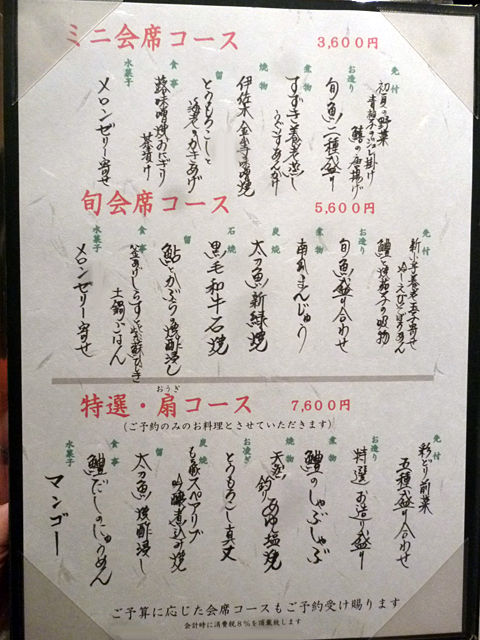 ミニ会席コース 3,600円
先付
初夏の野菜
鱧の唐揚げ
お造り
旬魚二種盛り
煮物
すずき養老蒸し
うにすあんかけ
焼物
伊佐木 金山寺味噌焼
留
とうもろこしと
海老のかきあげ
食事
蕗味噌焼おにぎり
茶漬け
水菓子
メロンゼリー寄せ
旬会席コース 5,600円
先付
お造り
旬魚盛り合わせ
煮物
南瓜まんじゅう
炭焼
太刀魚新緑焼
石焼
黒毛和牛石焼
留
鮎とかぶらの焼酢浸し
食事
釜あげしらすと
土鍋ごはん
水菓子
メロンゼリー寄せ
おうぎ
特選・扇コース 7,600円
(ご予約のみのお料理とさせていただきます)
先付
彩どり前菜
五種盛り合わせ
お造り
特選 お造り盛り
煮物
鱧のしゃぶしゃぶ
焼物
天然 釣りあゆ塩焼
お凌ぎ
とうもろこし真丈
炭焼
もち豚スペアリブ
吟醸煮込み焼
留
太刀魚焼酢浸し
食事
鱧だしのにゅうめん
水菓子
マンゴー
ご予算に応じた会席コースもご予約受け賜ります
会計時に消費税8%を頂戴致します